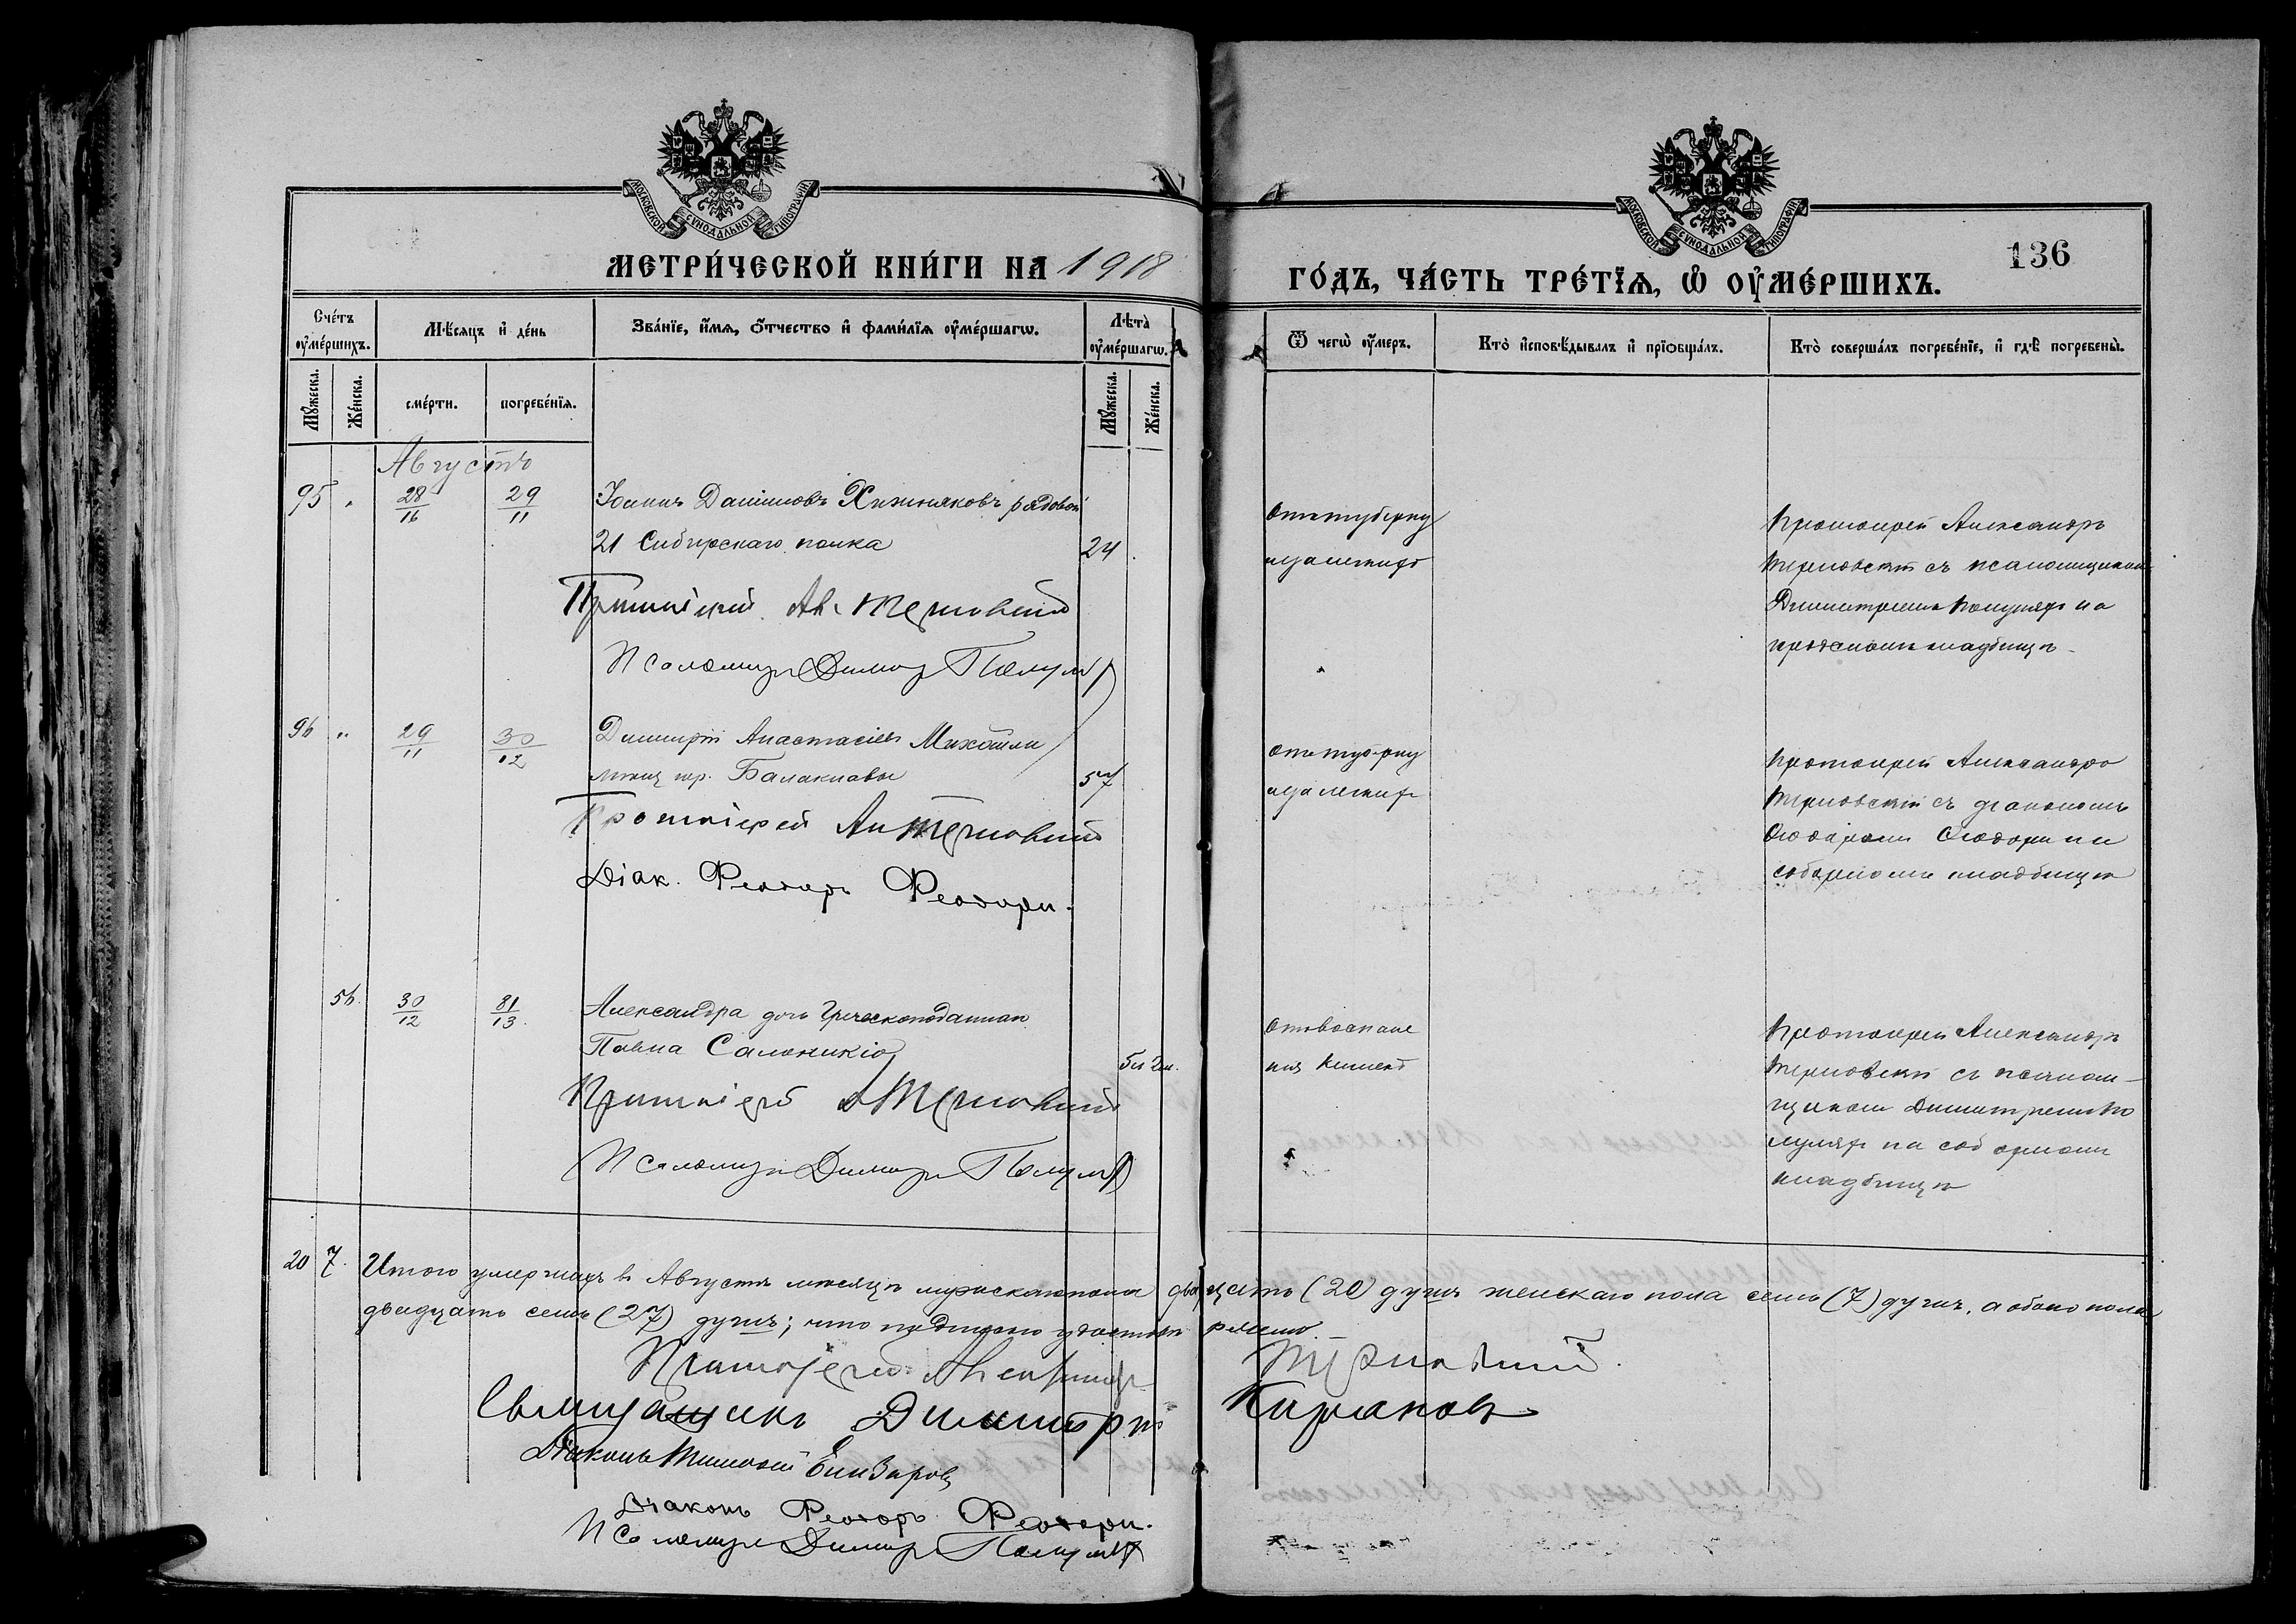 МОСКОВСКОЙ СУНОДАЛЬНОЙ ТИПОГРАФІИ
МОСКОВСКОЙ СУНОДАЛЬНОЙ ТИПОГРАФІИ
МЕТРИ́ЧЕСКОЙ КНИ́ГИ НА 1918
ГО́ДЪ, ЧА́СТЬ ТРЕ́ТЇѦ, Ѡ҆ ОУ҆МЕ́РШИХЪ.
136
Сче́тъ оу҆ме́ршихъ.
Мѣ́сяцъ и҆ де́нь
Зва́нїе, и҆́мѧ, ѻ҆́тчество и҆ фами́лїѧ оу҆ме́ршагѡ.
Лѣта̀ оу҆ме́ршагѡ.
Ѿ чегѡ̀ оу҆́меръ.
Кто̀ и҆сповѣ́дывалъ и҆ прїѡбща́лъ.
Кто̀ соверша́лъ погребе́нїе, и҆ гдѣ̀ погребены̀.
Мꙋ́жеска.
Же́нска.
сме́рти.
погребе́нїѧ.
Мꙋ́жеска.
Же́нска.
Августъ
95 28/16 29/11 Іоаннъ Даніиловъ Хижняковъ рядовой
21 Сибирскаго полка 24
Протоіерей Ал. Терновскій
Псаломщ Димит
отъ туберку
леза легкихъ
Протоіерей Александръ
Терновскій съ псаломщикомъ
Димитріемъ на
кладбищѣ
96 " 29/11 30/12 Димитрій Анастасіевъ Михайли
мѣщ гор. Балаклавы 57
Протоіерей Ал Терновскій
Діак. Феодоръ Феодори.
отъ туберку
леза легкихъ
Протоіерей Александръ
Терновскій съ діакономъ
Ѳеодоромъ Ѳеодори на
соборномъ кладбищѣ
56. 30/12 31/13. Александра дочь Греческоподаннаго
Павла Салоникіо
2м.
Протоіерей А Терновскій
Псаломщ Димитр
отъ воспале
нія кишекъ
Протоіерей Александръ
Терновскій съ псалом-
щикомъ Димитріемъ По
на соборномъ
кладбищѣ
20 7. Итого умершихъ въ Августѣ мѣсяцѣ мужескаго пола двадцать (20) душъ женскаго пола семь (7) душъ, а обоего пола
двадцать семь (27) душъ; что подписомъ удостовѣряемъ.
Протоіерей Александръ Терновскій.
Священникъ Димитрій Кираковъ
Діаконъ Тимофей
Діаконъ Феодоръ Феодори.
Псаломщ Димитр